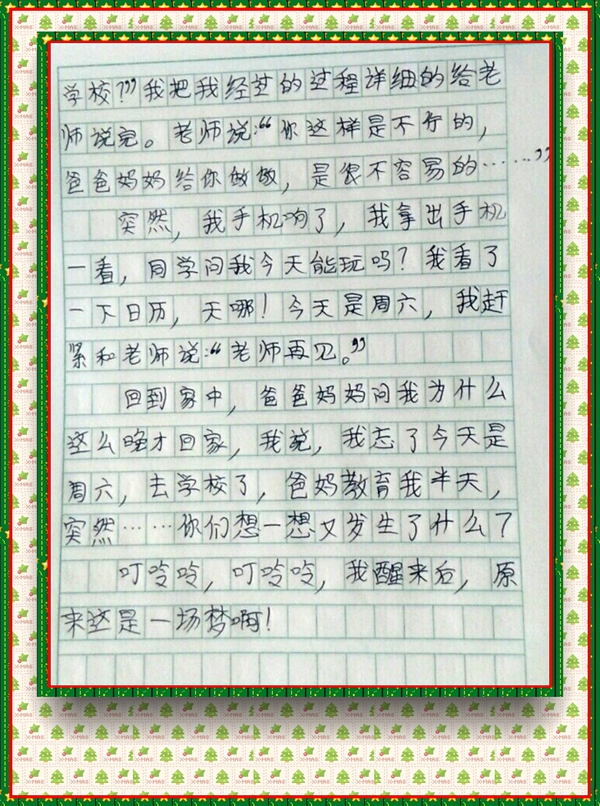 学校？”我把我经过的过程详细的给老
师说完。老师说：“你这样是不行的，
爸爸妈妈给你做饭，是很不容易的……”
突然，我手机响了，我拿出手机
一看，同学问我今天能玩吗？我看了
一下日历，天哪！今天是周六，我赶
紧和老师说：“老师再见。”
回到家中，爸爸妈妈问我为什么
这么晚才回家，我说，我忘了今天是
周六，去学校了，爸妈教育我半天，
突然……你们想一想又发生了什么了
叮呤呤，叮呤呤，我醒来后，原
来这是一场梦啊！